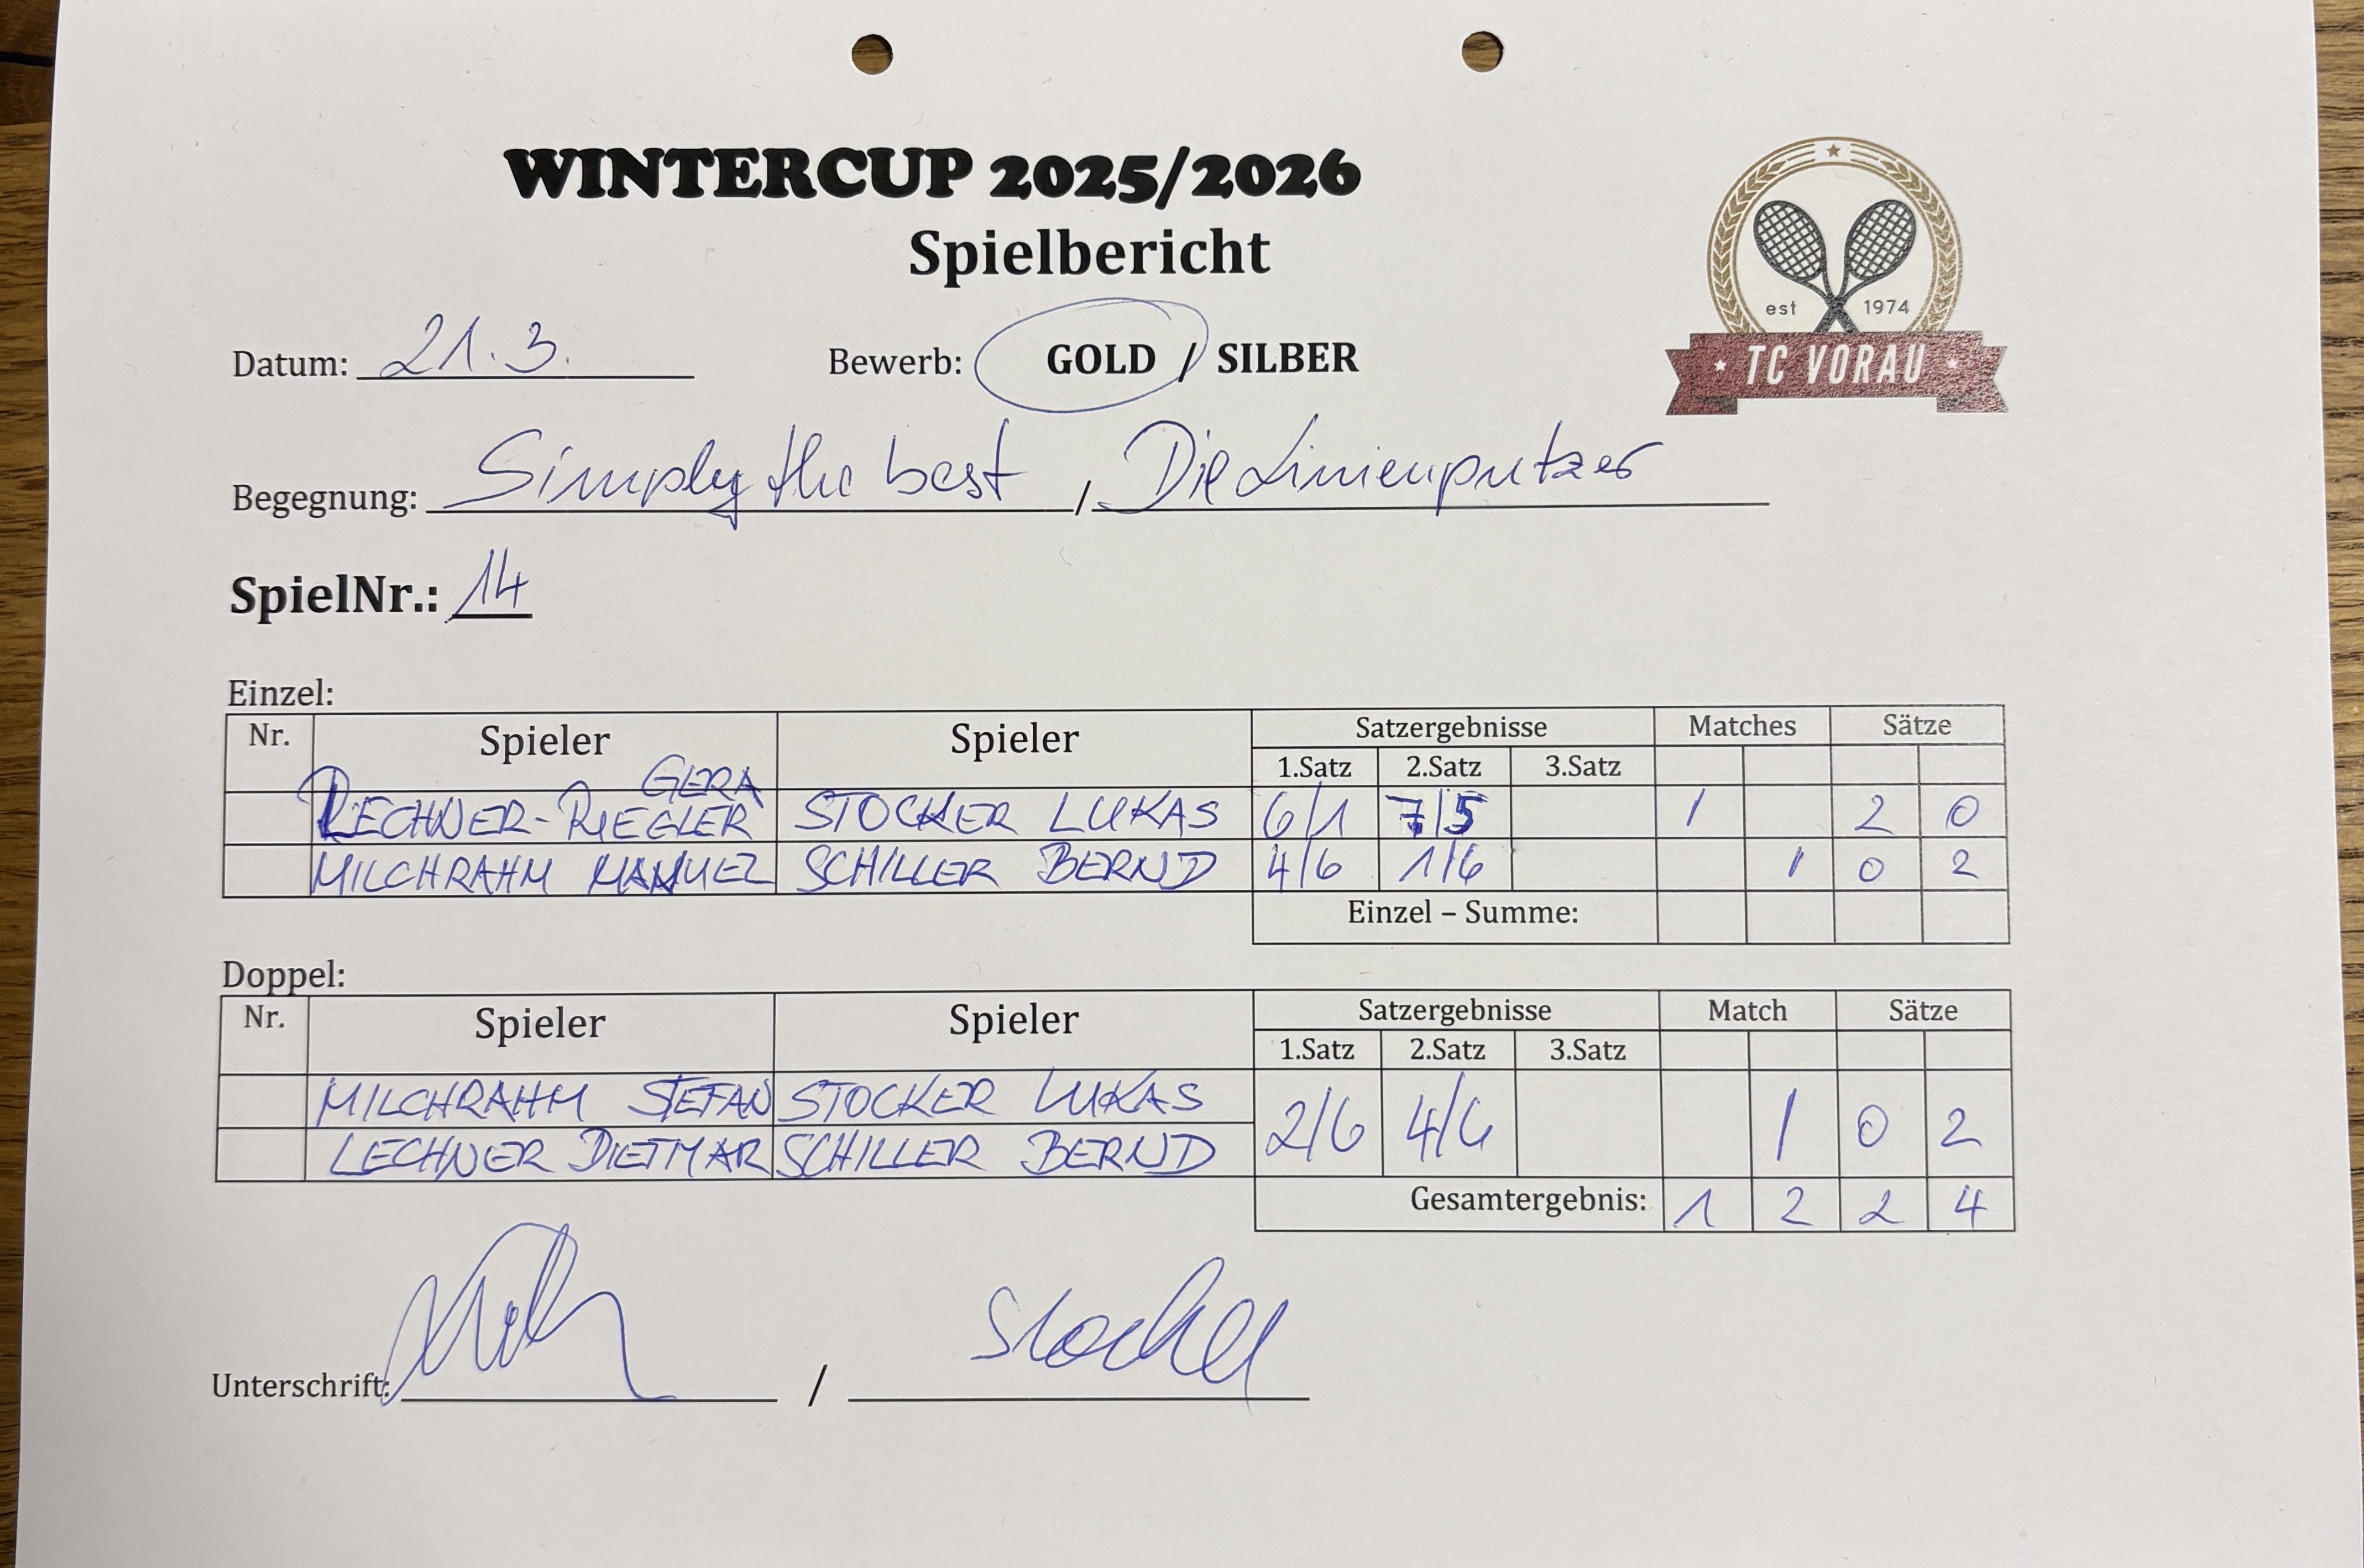 WINTERCUP 2025/2026
Spielbericht
est 1974
TC VORAU
Datum: 21.3. Bewerb: GOLD / SILBER
Begegnung: Simply the best / Die Linienputzer
SpielNr.: 14
Einzel:
Nr. Spieler Spieler Satzergebnisse Matches Sätze
1.Satz 2.Satz 3.Satz
GERA
LECHNER-RIEGLER STOCKER LUKAS 6/1 7/5 1 2 0
MILCHRAHM MANUEL SCHILLER BERND 4/6 1/6 1 0 2
Einzel – Summe:
Doppel:
Nr. Spieler Spieler Satzergebnisse Match Sätze
1.Satz 2.Satz 3.Satz
MILCHRAHM STEFAN STOCKER LUKAS 2/6 4/6 1 0 2
LECHNER DIETMAR SCHILLER BERND
Gesamtergebnis: 1 2 2 4
Unterschrift: / Stocker